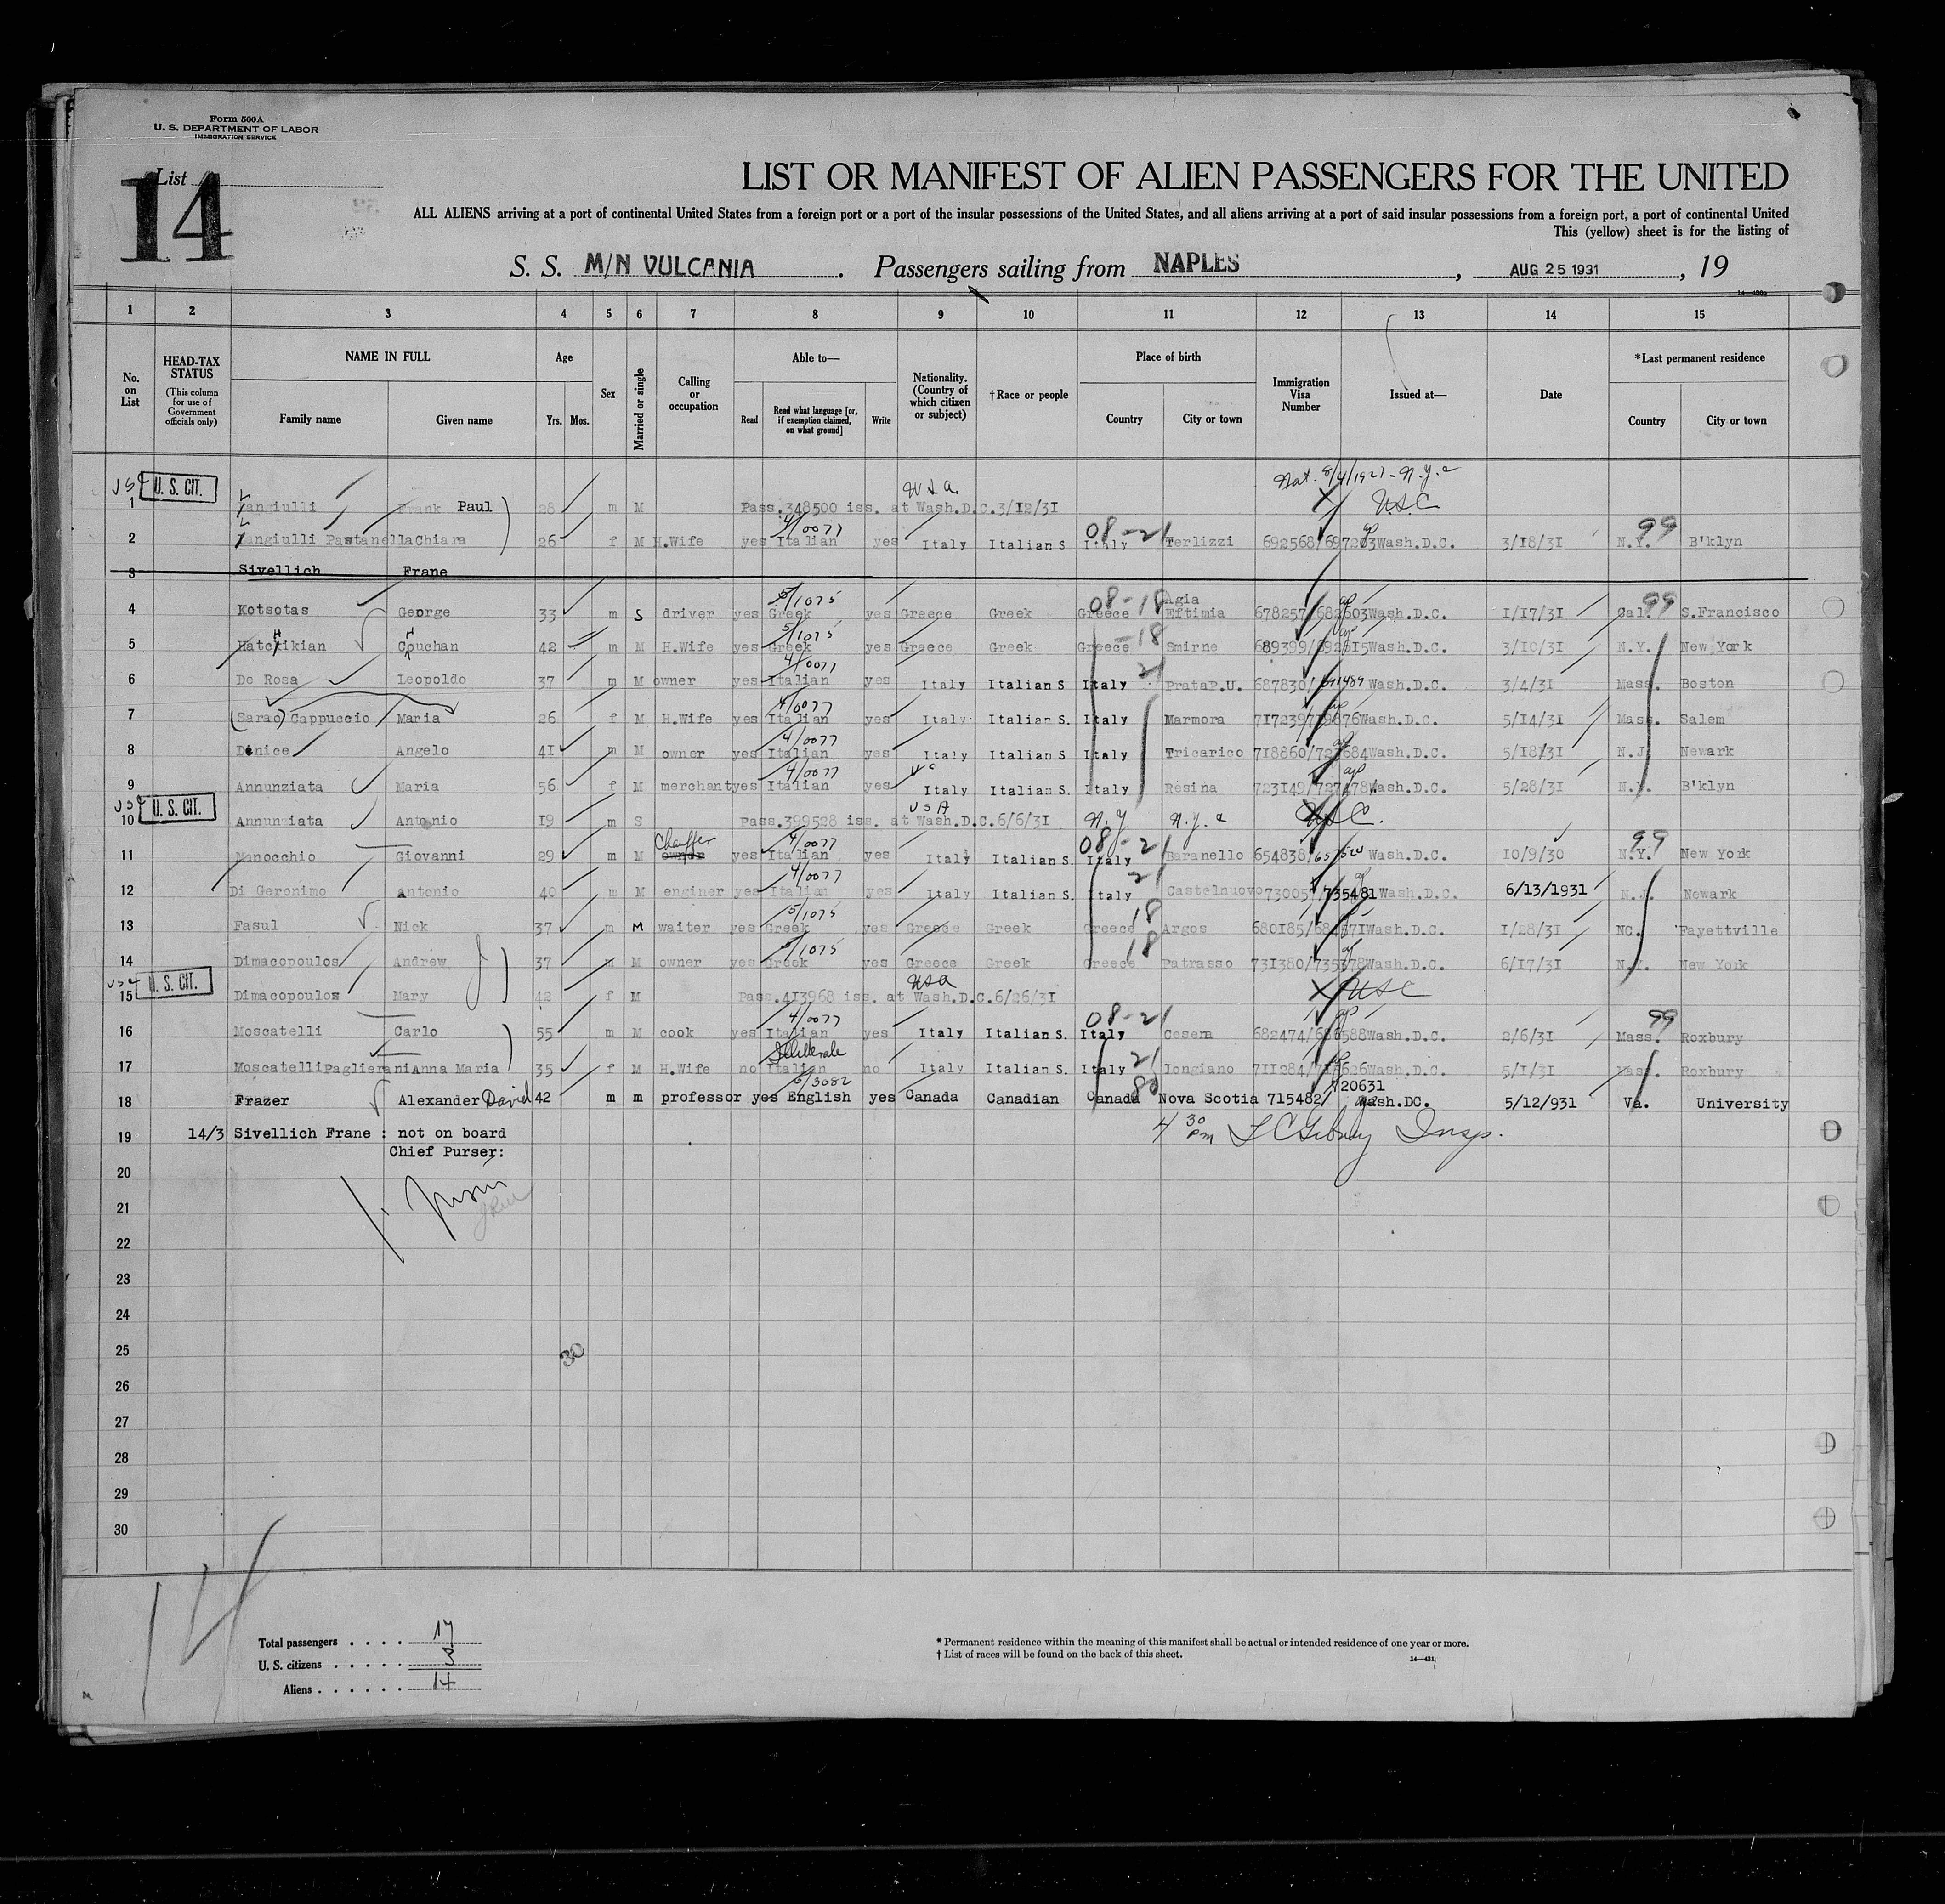 Form 500A
U. S. DEPARTMENT OF LABOR
IMMIGRATION SERVICE
List 14
LIST OR MANIFEST OF ALIEN PASSENGERS FOR THE UNITED
ALL ALIENS arriving at a port of continental United States from a foreign port or a port of the insular possessions of the United States, and all aliens arriving at a port of said insular possessions from a foreign port, a port of continental United
This (yellow) sheet is for the listing of
S. S. M/N VULCANIA . Passengers sailing from NAPLES , AUG 25 1931 , 19
1 2 3 4 5 6 7 8 9 10 11 12 13 14 15
No. on List
HEAD-TAX STATUS (This column for use of Government officials only)
NAME IN FULL Family name Given name
Age Yrs. Mos.
Sex
Married or single
Calling or occupation
Able to— Read Read what language [or, if exemption claimed, on what ground] Write
Nationality. (Country of which citizen or subject)
†Race or people
Place of birth Country City or town
Immigration Visa Number
Issued at—
Date
*Last permanent residence Country City or town
Nat. 8/4/1921 - N.Y.
1 U. S. CIT. angiulli Frank Paul 28 m M Pass.348500 iss. at Wash.D.C.3/12/31 USA USC
2 angiulli Pastanella Chiara 26 f M H.Wife yes Italian 4/0077 yes Italy Italian S Italy 08-21 Terlizzi 692568/697203 Wash.D.C. 3/18/31 N.Y. 99 B'klyn
3 Sivellich Frane
4 Kotsotas George 33 m S driver yes Greek 5/1075 yes Greece Greek Greece 08-18 Agia Eftimia 678257/682603 Wash.D.C. 1/17/31 Cal. 99 S.Francisco
5 Hatchikian Couchan 42 m M H.Wife yes Greek 5/1075 yes Greece Greek Greece -18 Smirne 689399/692615 Wash.D.C. 3/10/31 N.Y. New York
6 De Rosa Leopoldo 37 m M owner yes Italian 4/0077 yes Italy Italian S Italy 21 Prata P.U. 687830/ Wash.D.C. 3/4/31 Mass. Boston
7 (Sarao) Cappuccio Maria 26 f M H.Wife yes Italian 4/0077 yes Italy Italian S. Italy Marmora 717239 Wash.D.C. 5/14/31 Mass. Salem
8 Denice Angelo 41 m M owner yes Italian 4/0077 yes Italy Italian S Italy Tricarico 718860/ Wash.D.C. 5/18/31 N.J. Newark
9 Annunziata Maria 56 f M merchant yes Italian 4/0077 yes Italy Italian S. Italy Resina 723149/727478 Wash.D.C. 5/28/31 N.Y. B'klyn
10 U. S. CIT. Annunziata Antonio 19 m S Pass.399528 iss. at Wash.D.C.6/6/31 USA N.Y. N.Y. USC.
11 Manocchio Giovanni 29 m M owner Chauffer yes Italian 4/0077 yes Italy Italian S. Italy 08-21 Baranello 654838/ Wash.D.C. 10/9/30 N.Y. 99 New York
12 Di Geronimo Antonio 40 m M enginer yes Italian 4/0077 yes Italy Italian S. Italy 21 Castelnuovo 73005 /735481 Wash.D.C. 6/13/1931 N.J. Newark
13 Fasul Nick 37 m M waiter yes Greek 5/1075 yes Greece Greek Greece 18 Argos 680185/ Wash.D.C. 1/28/31 NC. Fayettville
14 Dimacopoulos Andrew 37 M owner yes Greek 5/1075 yes Greece Greek Greece 18 Patrasso 731380/735378 Wash.D.C. 6/17/31 N.Y. New York
15 U. S. CIT. Dimacopoulos Mary 42 f M Pass.413968 iss. at Wash.D.C.6/26/31 USA USC
16 Moscatelli Carlo 55 m M cook yes Italian 4/0077 yes Italy Italian S. Italy 08-21 Cesena 682474/ Wash.D.C. 2/6/31 Mass. 99 Roxbury
17 Moscatelli Paglierani Anna Maria 35 f M H.Wife no Italian no Italy Italian S. Italy 21 Longiano 711284/ Wash.D.C. 5/1/31 Mass. Roxbury
18 Frazer Alexander David 42 m m professor yes English 5/3082 yes Canada Canadian Canada 80 Nova Scotia 715482/ 720631 Wash.DC. 5/12/931 Va. University
19 14/3 Sivellich Frane : not on board
Chief Purser:
4 30 pm Insp.
20
21
22
23
24
25
30
26
27
28
29
30
14
Total passengers . . . . 17
U. S. citizens . . . . . 3
Aliens . . . . . . 14
* Permanent residence within the meaning of this manifest shall be actual or intended residence of one year or more.
† List of races will be found on the back of this sheet.
14—431